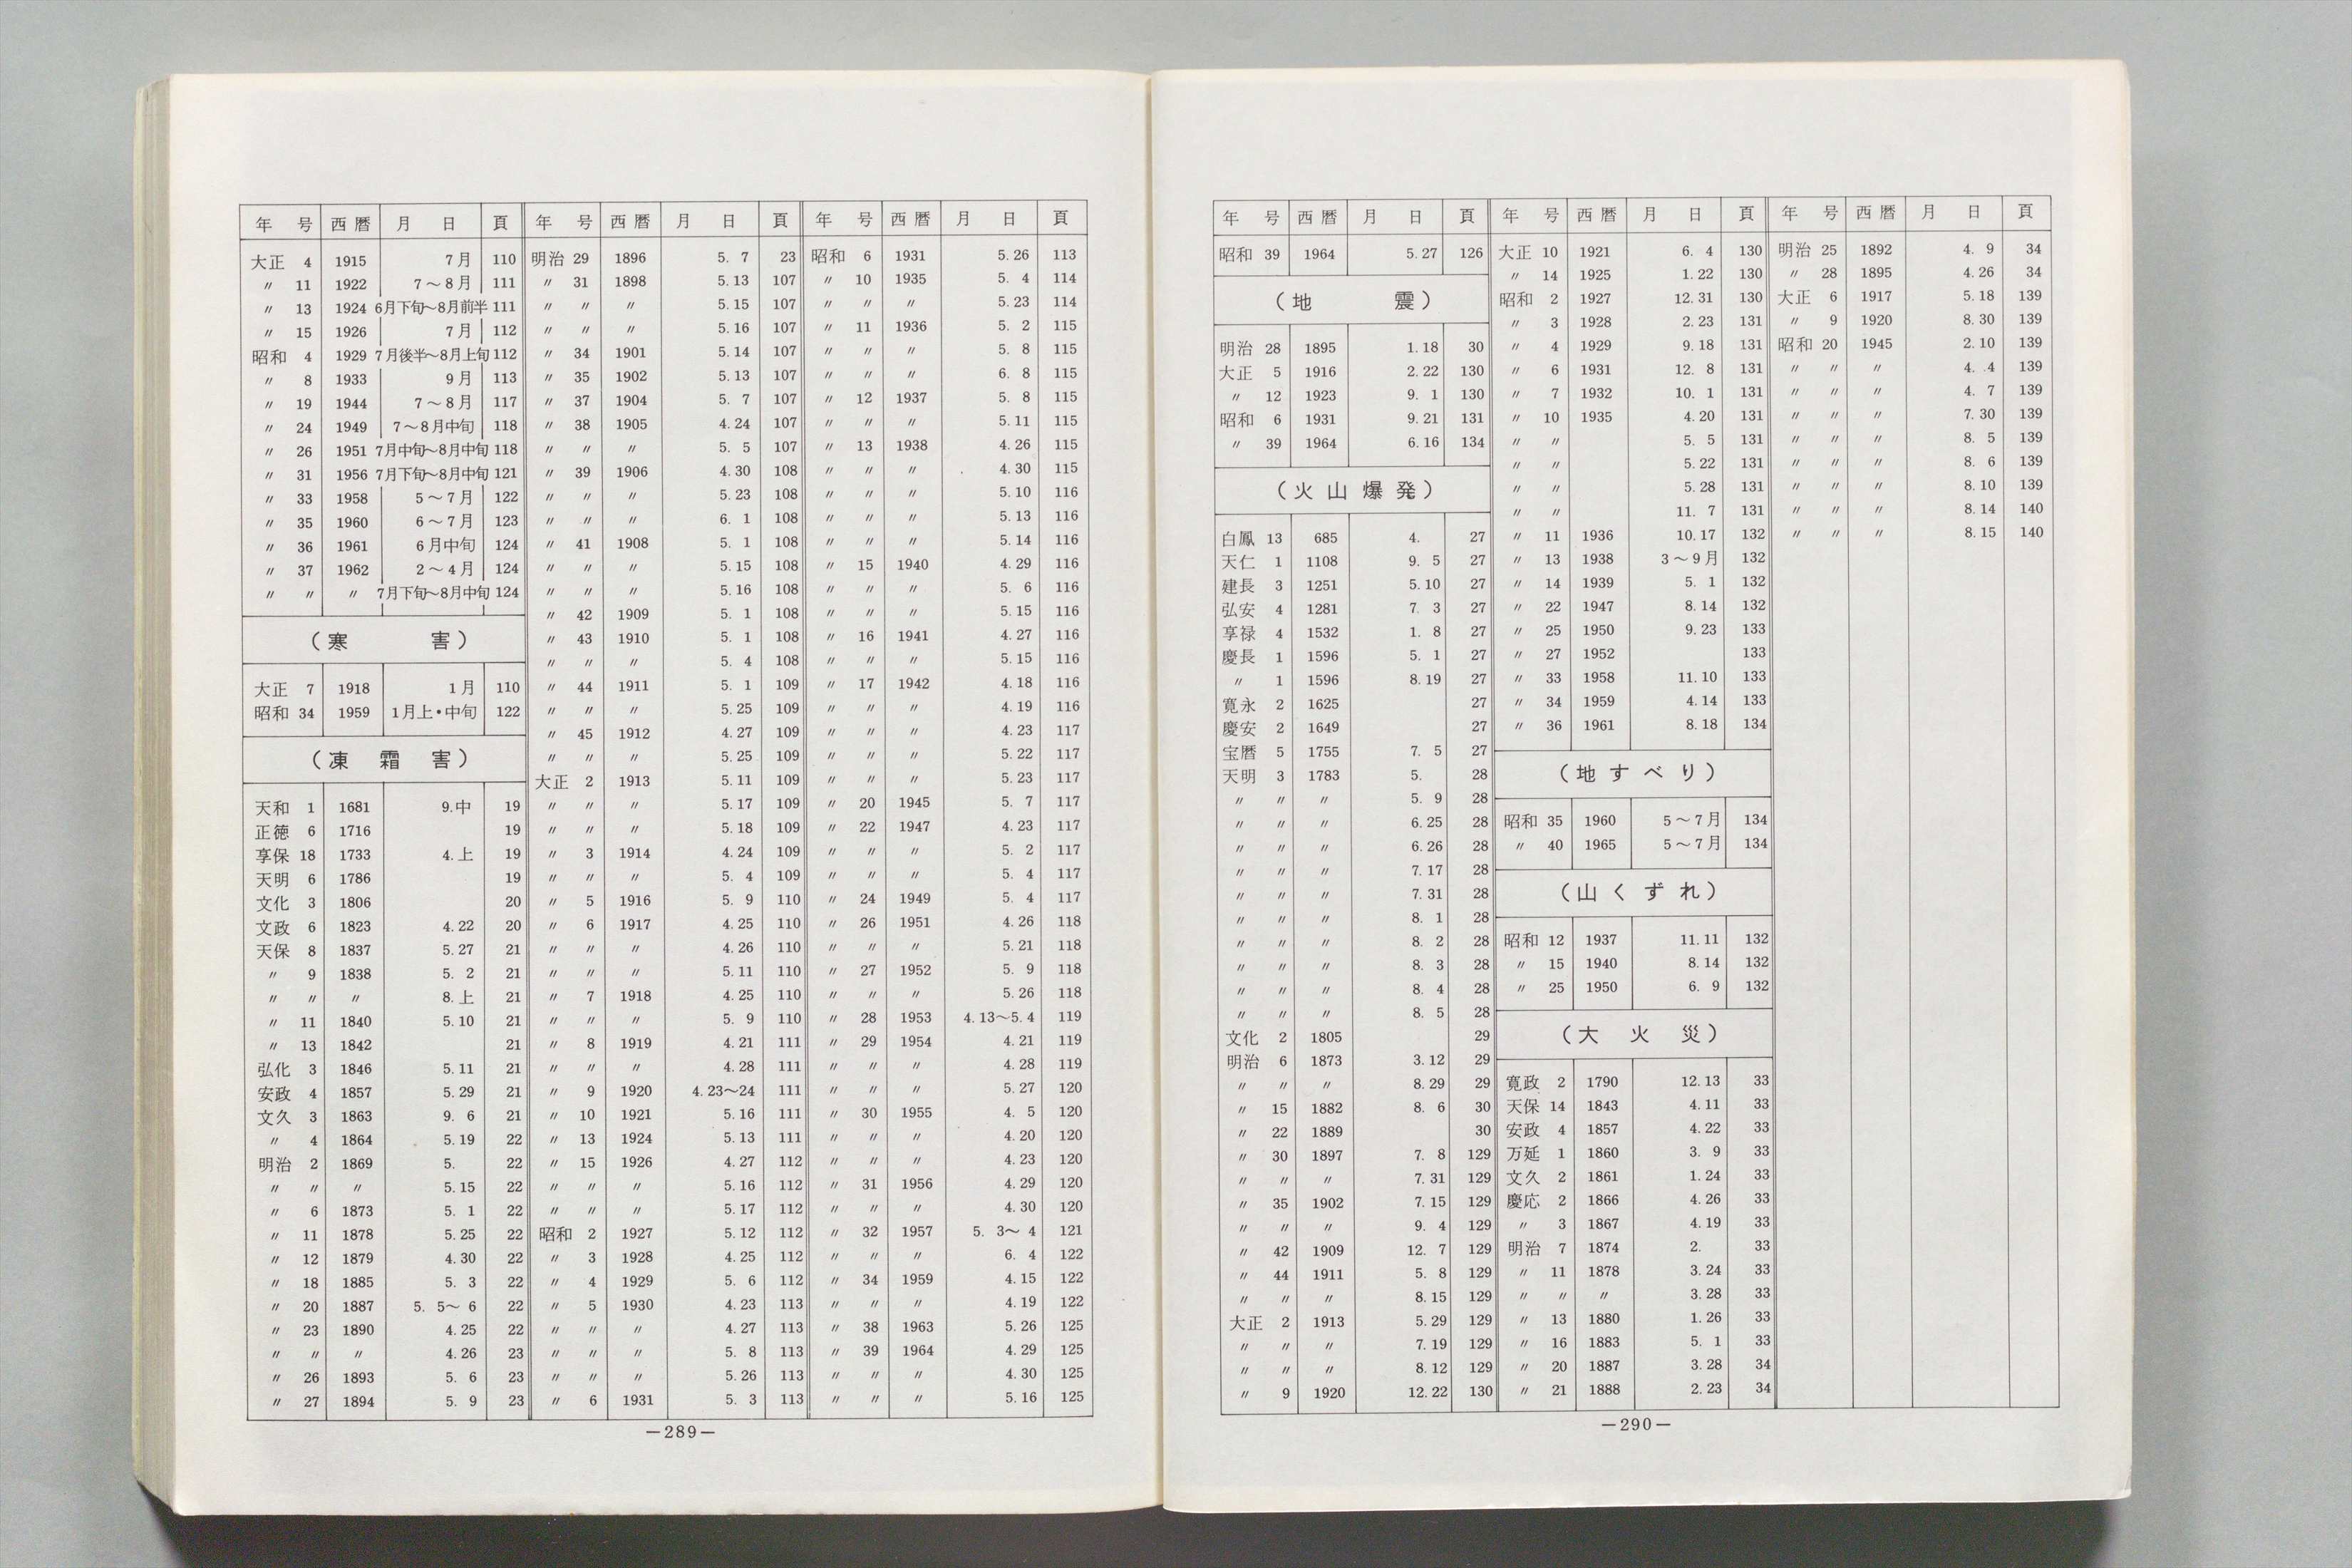 年 号 西暦 月 日 頁
大正 4 1915 7月 110
〃 11 1922 7～8月 111
〃 13 1924 6月下旬～8月前半 111
〃 15 1926 7月 112
昭和 4 1929 7月後半～8月上旬 112
〃 8 1933 9月 113
〃 19 1944 7～8月 117
〃 24 1949 7～8月中旬 118
〃 26 1951 7月中旬～8月中旬 118
〃 31 1956 7月下旬～8月中旬 121
〃 33 1958 5～7月 122
〃 35 1960 6～7月 123
〃 36 1961 6月中旬 124
〃 37 1962 2～4月 124
〃 〃 〃 7月下旬～8月中旬 124
（寒 害）
大正 7 1918 1月 110
昭和 34 1959 1月上・中旬 122
（凍 霜 害）
天和 1 1681 9.中 19
正徳 6 1716 19
享保 18 1733 4.上 19
天明 6 1786 19
文化 3 1806 20
文政 6 1823 4.22 20
天保 8 1837 5.27 21
〃 9 1838 5. 2 21
〃 〃 〃 8.上 21
〃 11 1840 5.10 21
〃 13 1842 21
弘化 3 1846 5.11 21
安政 4 1857 5.29 21
文久 3 1863 9. 6 21
〃 4 1864 5.19 22
明治 2 1869 5. 22
〃 〃 〃 5.15 22
〃 6 1873 5. 1 22
〃 11 1878 5.25 22
〃 12 1879 4.30 22
〃 18 1885 5. 3 22
〃 20 1887 5. 5～ 6 22
〃 23 1890 4.25 22
〃 〃 〃 4.26 23
〃 26 1893 5. 6 23
〃 27 1894 5. 9 23
年 号 西暦 月 日 頁
明治 29 1896 5. 7 23
〃 31 1898 5.13 107
〃 〃 〃 5.15 107
〃 〃 〃 5.16 107
〃 34 1901 5.14 107
〃 35 1902 5.13 107
〃 37 1904 5. 7 107
〃 38 1905 4.24 107
〃 〃 〃 5. 5 107
〃 39 1906 4.30 108
〃 〃 〃 5.23 108
〃 〃 〃 6. 1 108
〃 41 1908 5. 1 108
〃 〃 〃 5.15 108
〃 〃 〃 5.16 108
〃 42 1909 5. 1 108
〃 43 1910 5. 1 108
〃 〃 〃 5. 4 108
〃 44 1911 5. 1 109
〃 〃 〃 5.25 109
〃 45 1912 4.27 109
〃 〃 〃 5.25 109
大正 2 1913 5.11 109
〃 〃 〃 5.17 109
〃 〃 〃 5.18 109
〃 3 1914 4.24 109
〃 〃 〃 5. 4 109
〃 5 1916 5. 9 110
〃 6 1917 4.25 110
〃 〃 〃 4.26 110
〃 〃 〃 5.11 110
〃 7 1918 4.25 110
〃 〃 〃 5. 9 110
〃 8 1919 4.21 111
〃 〃 〃 4.28 111
〃 9 1920 4.23～24 111
〃 10 1921 5.16 111
〃 13 1924 5.13 111
〃 15 1926 4.27 112
〃 〃 〃 5.16 112
〃 〃 〃 5.17 112
昭和 2 1927 5.12 112
〃 3 1928 4.25 112
〃 4 1929 5. 6 112
〃 5 1930 4.23 113
〃 〃 〃 4.27 113
〃 〃 〃 5. 8 113
〃 〃 〃 5.26 113
〃 6 1931 5. 3 113
年 号 西暦 月 日 頁
昭和 6 1931 5.26 113
〃 10 1935 5. 4 114
〃 〃 〃 5.23 114
〃 11 1936 5. 2 115
〃 〃 〃 5. 8 115
〃 〃 〃 6. 8 115
〃 12 1937 5. 8 115
〃 〃 〃 5.11 115
〃 13 1938 4.26 115
〃 〃 〃 4.30 115
〃 〃 〃 5.10 116
〃 〃 〃 5.13 116
〃 〃 〃 5.14 116
〃 15 1940 4.29 116
〃 〃 〃 5. 6 116
〃 〃 〃 5.15 116
〃 16 1941 4.27 116
〃 〃 〃 5.15 116
〃 17 1942 4.18 116
〃 〃 〃 4.19 116
〃 〃 〃 4.23 117
〃 〃 〃 5.22 117
〃 〃 〃 5.23 117
〃 20 1945 5. 7 117
〃 22 1947 4.23 117
〃 〃 〃 5. 2 117
〃 〃 〃 5. 4 117
〃 24 1949 5. 4 117
〃 26 1951 4.26 118
〃 〃 〃 5.21 118
〃 27 1952 5. 9 118
〃 〃 〃 5.26 118
〃 28 1953 4.13～5. 4 119
〃 29 1954 4.21 119
〃 〃 〃 4.28 119
〃 〃 〃 5.27 120
〃 30 1955 4. 5 120
〃 〃 〃 4.20 120
〃 〃 〃 4.23 120
〃 31 1956 4.29 120
〃 〃 〃 4.30 120
〃 32 1957 5. 3～ 4 121
〃 〃 〃 6. 4 122
〃 34 1959 4.15 122
〃 〃 〃 4.19 122
〃 38 1963 5.26 125
〃 39 1964 4.29 125
〃 〃 〃 4.30 125
〃 〃 〃 5.16 125
―289―
年 号 西暦 月 日 頁
昭和 39 1964 5.27 126
（地 震）
明治 28 1895 1.18 30
大正 5 1916 2.22 130
〃 12 1923 9. 1 130
昭和 6 1931 9.21 131
〃 39 1964 6.16 134
（火山爆発）
白鳳 13 685 4. 27
天仁 1 1108 9. 5 27
建長 3 1251 5.10 27
弘安 4 1281 7. 3 27
享禄 4 1532 1. 8 27
慶長 1 1596 5. 1 27
〃 1 1596 8.19 27
寛永 2 1625 27
慶安 2 1649 27
宝暦 5 1755 7. 5 27
天明 3 1783 5. 28
〃 〃 〃 5. 9 28
〃 〃 〃 6.25 28
〃 〃 〃 6.26 28
〃 〃 〃 7.17 28
〃 〃 〃 7.31 28
〃 〃 〃 8. 1 28
〃 〃 〃 8. 2 28
〃 〃 〃 8. 3 28
〃 〃 〃 8. 4 28
〃 〃 〃 8. 5 28
文化 2 1805 29
明治 6 1873 3.12 29
〃 〃 〃 8.29 29
〃 15 1882 8. 6 30
〃 22 1889 30
〃 30 1897 7. 8 129
〃 〃 〃 7.31 129
〃 35 1902 7.15 129
〃 〃 〃 9. 4 129
〃 42 1909 12. 7 129
〃 44 1911 5. 8 129
〃 〃 〃 8.15 129
大正 2 1913 5.29 129
〃 〃 〃 7.19 129
〃 〃 〃 8.12 129
〃 9 1920 12.22 130
年 号 西暦 月 日 頁
大正 10 1921 6. 4 130
〃 14 1925 1.22 130
昭和 2 1927 12.31 130
〃 3 1928 2.23 131
〃 4 1929 9.18 131
〃 6 1931 12. 8 131
〃 7 1932 10. 1 131
〃 10 1935 4.20 131
〃 〃 5. 5 131
〃 〃 5.22 131
〃 〃 5.28 131
〃 〃 11. 7 131
〃 11 1936 10.17 132
〃 13 1938 3～9月 132
〃 14 1939 5. 1 132
〃 22 1947 8.14 132
〃 25 1950 9.23 133
〃 27 1952 133
〃 33 1958 11.10 133
〃 34 1959 4.14 133
〃 36 1961 8.18 134
（地すべり）
昭和 35 1960 5～7月 134
〃 40 1965 5～7月 134
（山くずれ）
昭和 12 1937 11.11 132
〃 15 1940 8.14 132
〃 25 1950 6. 9 132
（大 火 災）
寛政 2 1790 12.13 33
天保 14 1843 4.11 33
安政 4 1857 4.22 33
万延 1 1860 3. 9 33
文久 2 1861 1.24 33
慶応 2 1866 4.26 33
〃 3 1867 4.19 33
明治 7 1874 2. 33
〃 11 1878 3.24 33
〃 〃 〃 3.28 33
〃 13 1880 1.26 33
〃 16 1883 5. 1 33
〃 20 1887 3.28 34
〃 21 1888 2.23 34
年 号 西暦 月 日 頁
明治 25 1892 4. 9 34
〃 28 1895 4.26 34
大正 6 1917 5.18 139
〃 9 1920 8.30 139
昭和 20 1945 2.10 139
〃 〃 〃 4. 4 139
〃 〃 〃 4. 7 139
〃 〃 〃 7.30 139
〃 〃 〃 8. 5 139
〃 〃 〃 8. 6 139
〃 〃 〃 8.10 139
〃 〃 〃 8.14 140
〃 〃 〃 8.15 140
―290―